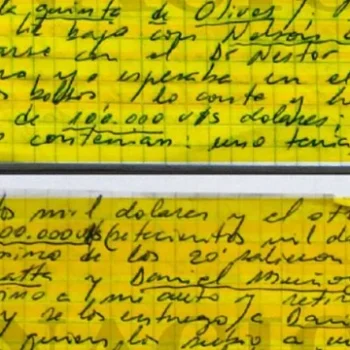 quinta de Olivos
bajo con Nelson
con el Dr Nestor
yo esperaba en el
bolsos lo conto y
de 100.000 u$s dolares:
contenian: uno tenia
mil dolares y el
00.000 u$s (setecientos mil
de los 20 palieron
y Daniel Muñoz
a mi auto y
y se los entrego a
quien los subio a